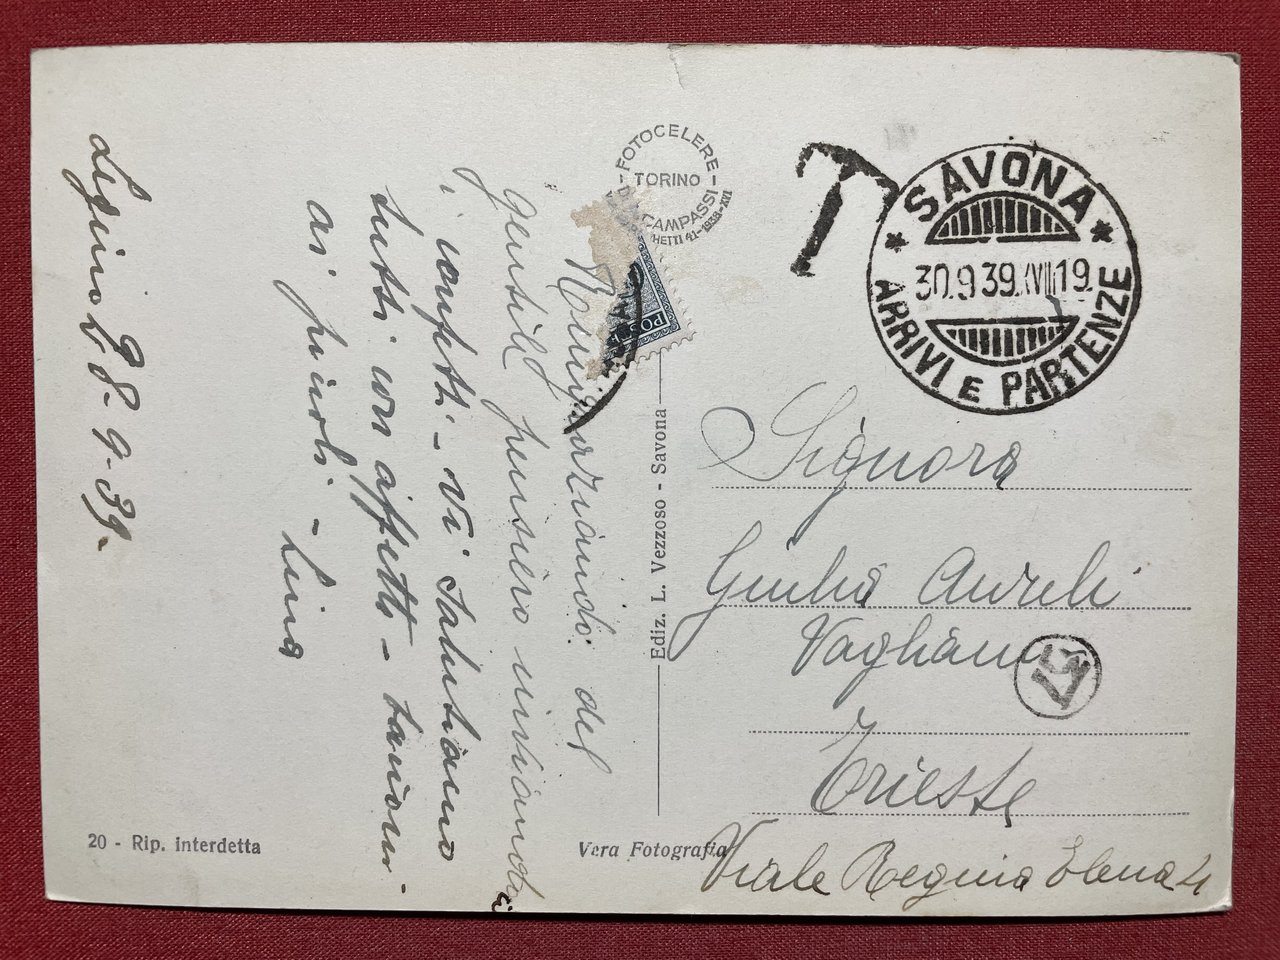 Legino 28-9-39.
Ringraziando del
gentile pensiero inviando
i confetti - Vi salutiamo
tutti con affetto - 
ai piccoli - Lina
FOTOCELERE
TORINO
CAMPASSI
POS
SAVONA
30.9.39.XVII 19
ARRIVI E PARTENZE
T
Ediz. L. Vezzoso - Savona
Signora
Giulia Aureli
Vagliani
57
Trieste
Viale Regina Elena 4
20 - Rip. interdetta
Vera Fotografia